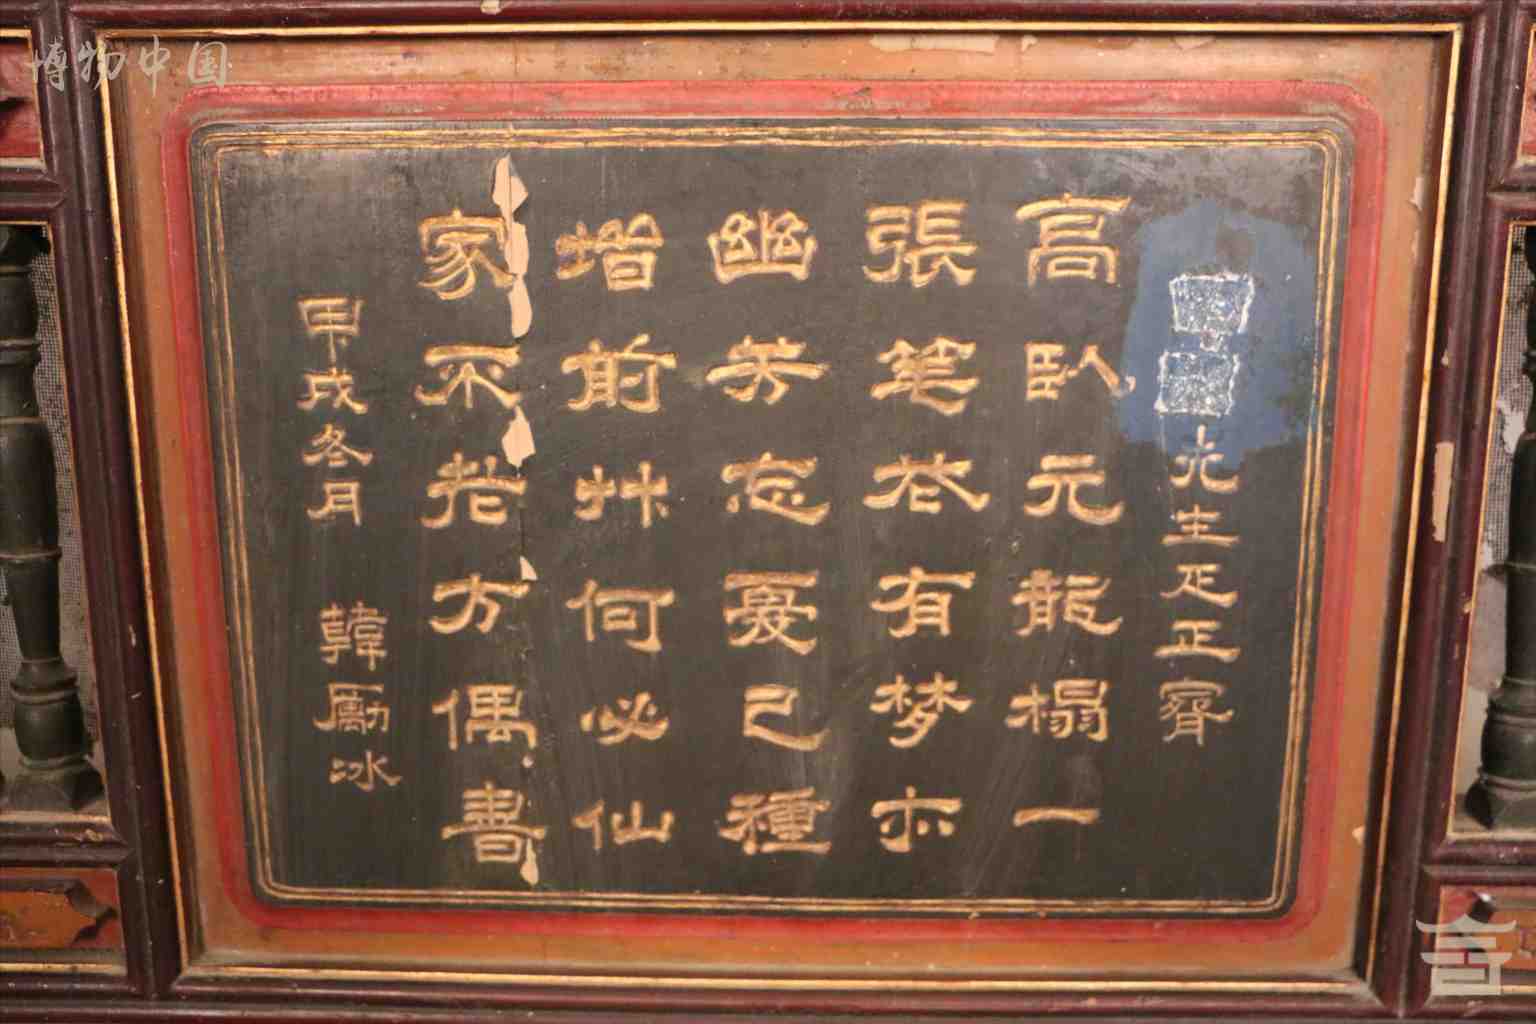 先生疋正
高臥元龍榻一
張笔花有梦亦
幽芳忘憂已種
堦前艸何必仙
家不老方偶書
甲戌冬月 韓勵冰
博物中国